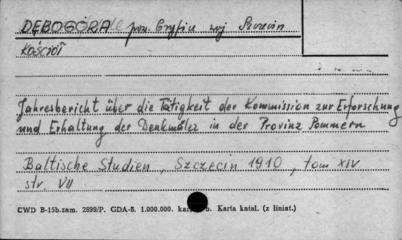 DĘBOGÓRA pow. Gryfice woj Szczecin
KOŚCIÓŁ
Jahresbericht über die Tätigkeit der Kommission zur Erforschung
und Erhaltung der Denkmäler in der Provinz Pommern
Baltische Studien, Szczecin 1910, tom XIV
str. VII
CWD B-15b.zam. 2899/P. GDA-8. 1.000.000. Karta katal. (z liniat.)